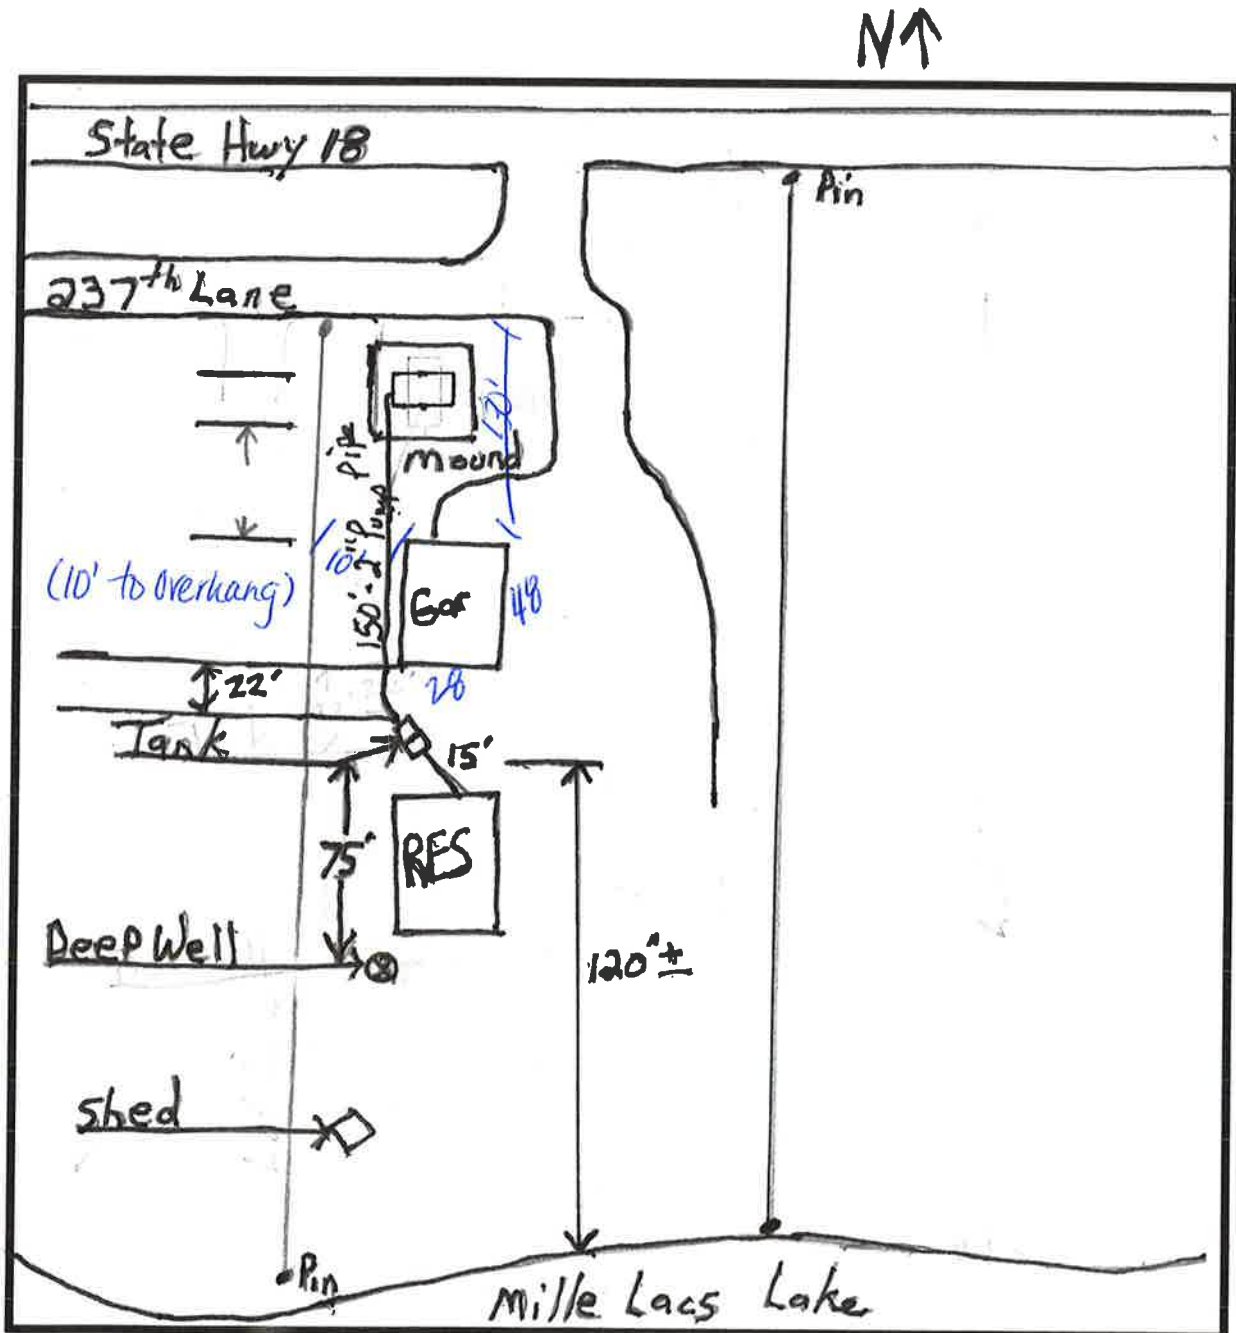 N↑
State Hwy 18
Pin
237th Lane
130'
Mound
150'-2" Pump Pipe
10'
(10' to Overhang)
Gar
48
28
22'
Tank
15'
75'
RES
Deep Well
120" ±
Shed
Pin
Mille Lacs Lake